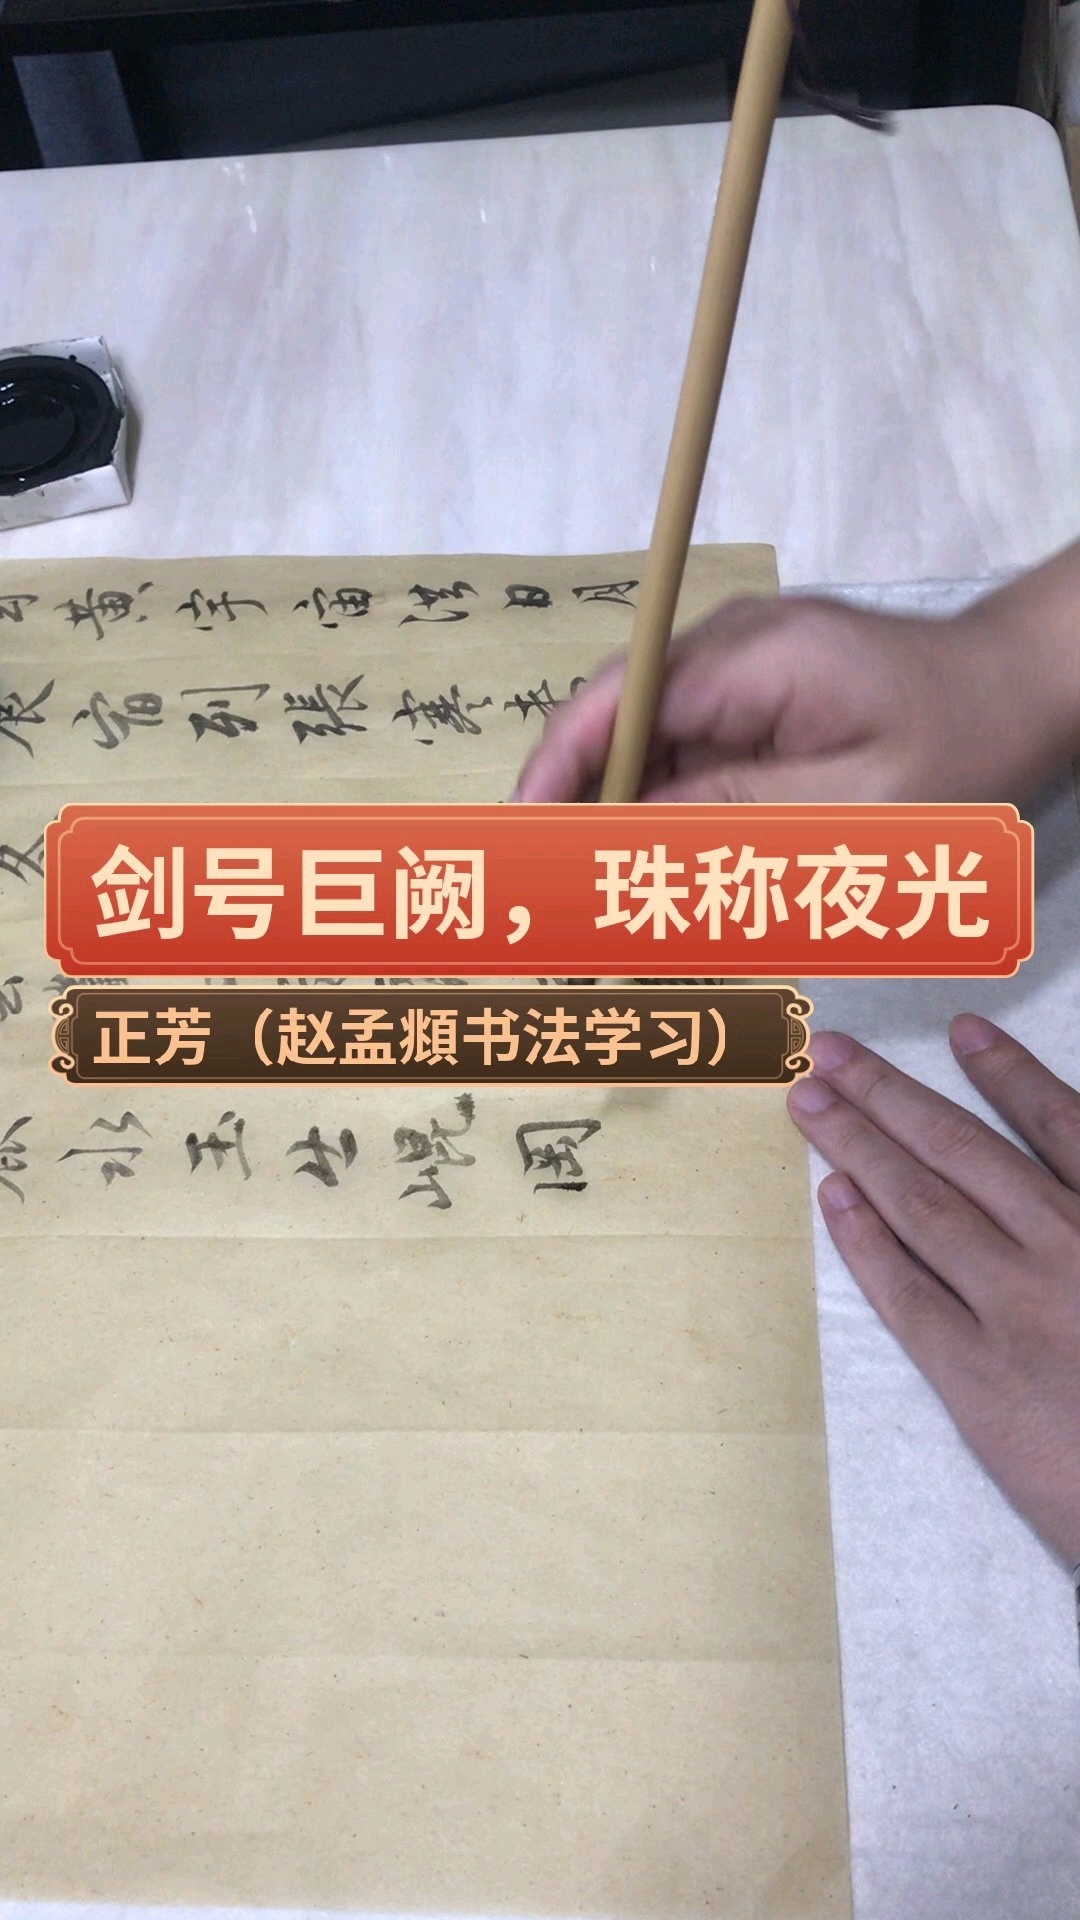 黄宇宙洪日月
辰宿列張寒来
剑号巨阙，珠称夜光
正芳（赵孟頫书法学习）
水玉出崐岡